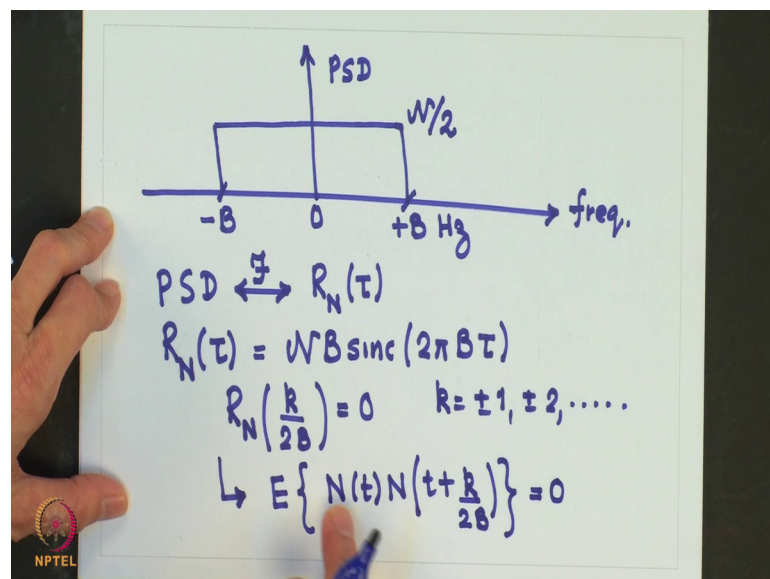 PSD
𝒩/2
-B 0 +B Hz freq.
PSD ⟷ℱ R_N(τ)
R_N(τ) = 𝒩B sinc(2πBτ)
R_N(k/2B) = 0 k = ±1, ±2, .....
↳ E{N(t)N(t+k/2B)} = 0
NPTEL